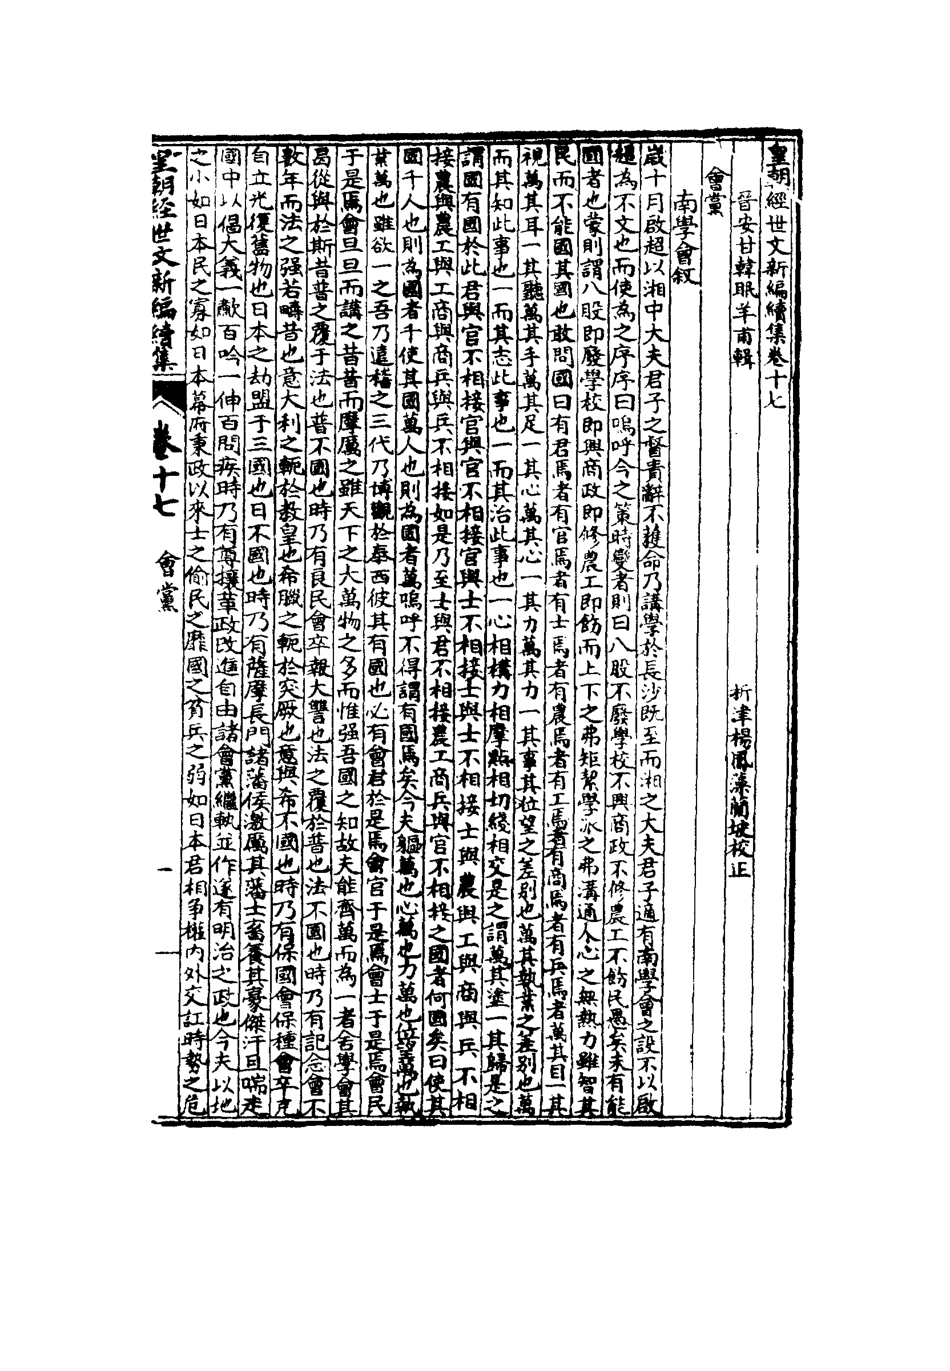 皇朝經世文新編續集卷十七
晉安甘韓眠羊甫輯 析津楊鳳藻蘭坡校正
會黨
南學會敘
歲十月啟超以湘中大夫君子之督責辭不獲命乃講學於長沙既至而湘之大夫君子適有南學會之設不以啟
超為不文也而使為之序序曰嗚呼今之策時變者則曰八股不廢學校不興商政不修農工不飭民愚矣未有能
國者也蒙則謂八股即廢學校即興商政即修農工即飭而上下之弗矩絜學派之弗溝通人心之無熱力雖智其
民而不能國其國也敢問國曰有君焉者有官焉者有士焉者有農焉者有工焉者有商焉者有兵焉者萬其目一其
視萬其耳一其聽萬其手萬其足一其心萬其心一其力萬其力一其事其位望之差別也萬其執業之差別也萬
而其知此事也一而其志此事也一而其治此事也一心相構力相摩點相切綫相交是之謂萬其塗一其歸是之
謂國有國於此君與官不相接官與官不相接官與士不相接士與士不相接士與農與工與商與兵不相
接農與農工與工商與商兵與兵不相接如是乃至士與君不相接農工商兵與官不相接之國者何國矣曰使其
國千人也則為國者千使其國萬人也則為國者萬嗚呼不得謂有國焉矣今夫軀萬也心萬也力萬也位望萬也執
業萬也雖欲一之吾乃遠稽之三代乃博觀於泰西彼其有國也必有會君於是焉會官于是焉會士于是焉會民
于是焉會旦旦而講之昔昔而摩厲之雖天下之大萬物之多而惟强吾國之知故夫能齊萬而為一者舍學會其
曷從與於斯昔普之覆于法也普不國也時乃有良民會卒報大讐也法之覆於普也法不國也時乃有記念會不
數年而法之强若疇昔也意大利之軛於教皇也希臘之軛於突厥也意與希不國也時乃有保國會保種會卒克
自立光復舊物也日本之劫盟于三國也日不國也時乃有薩摩長門諸藩侯激厲其藩士畜養其豪傑汗且喘走
國中以倡大義一歗百吟一伸百問疾時乃有尊攘革政改進自由諸會黨繼軌並作遂有明治之政也今夫以地
之小如日本民之寡如日本幕府秉政以來士之偷民之靡國之貧兵之弱如日本君相爭權內外交訌時勢之危
皇朝經世文新編續集 卷十七 會黨 一